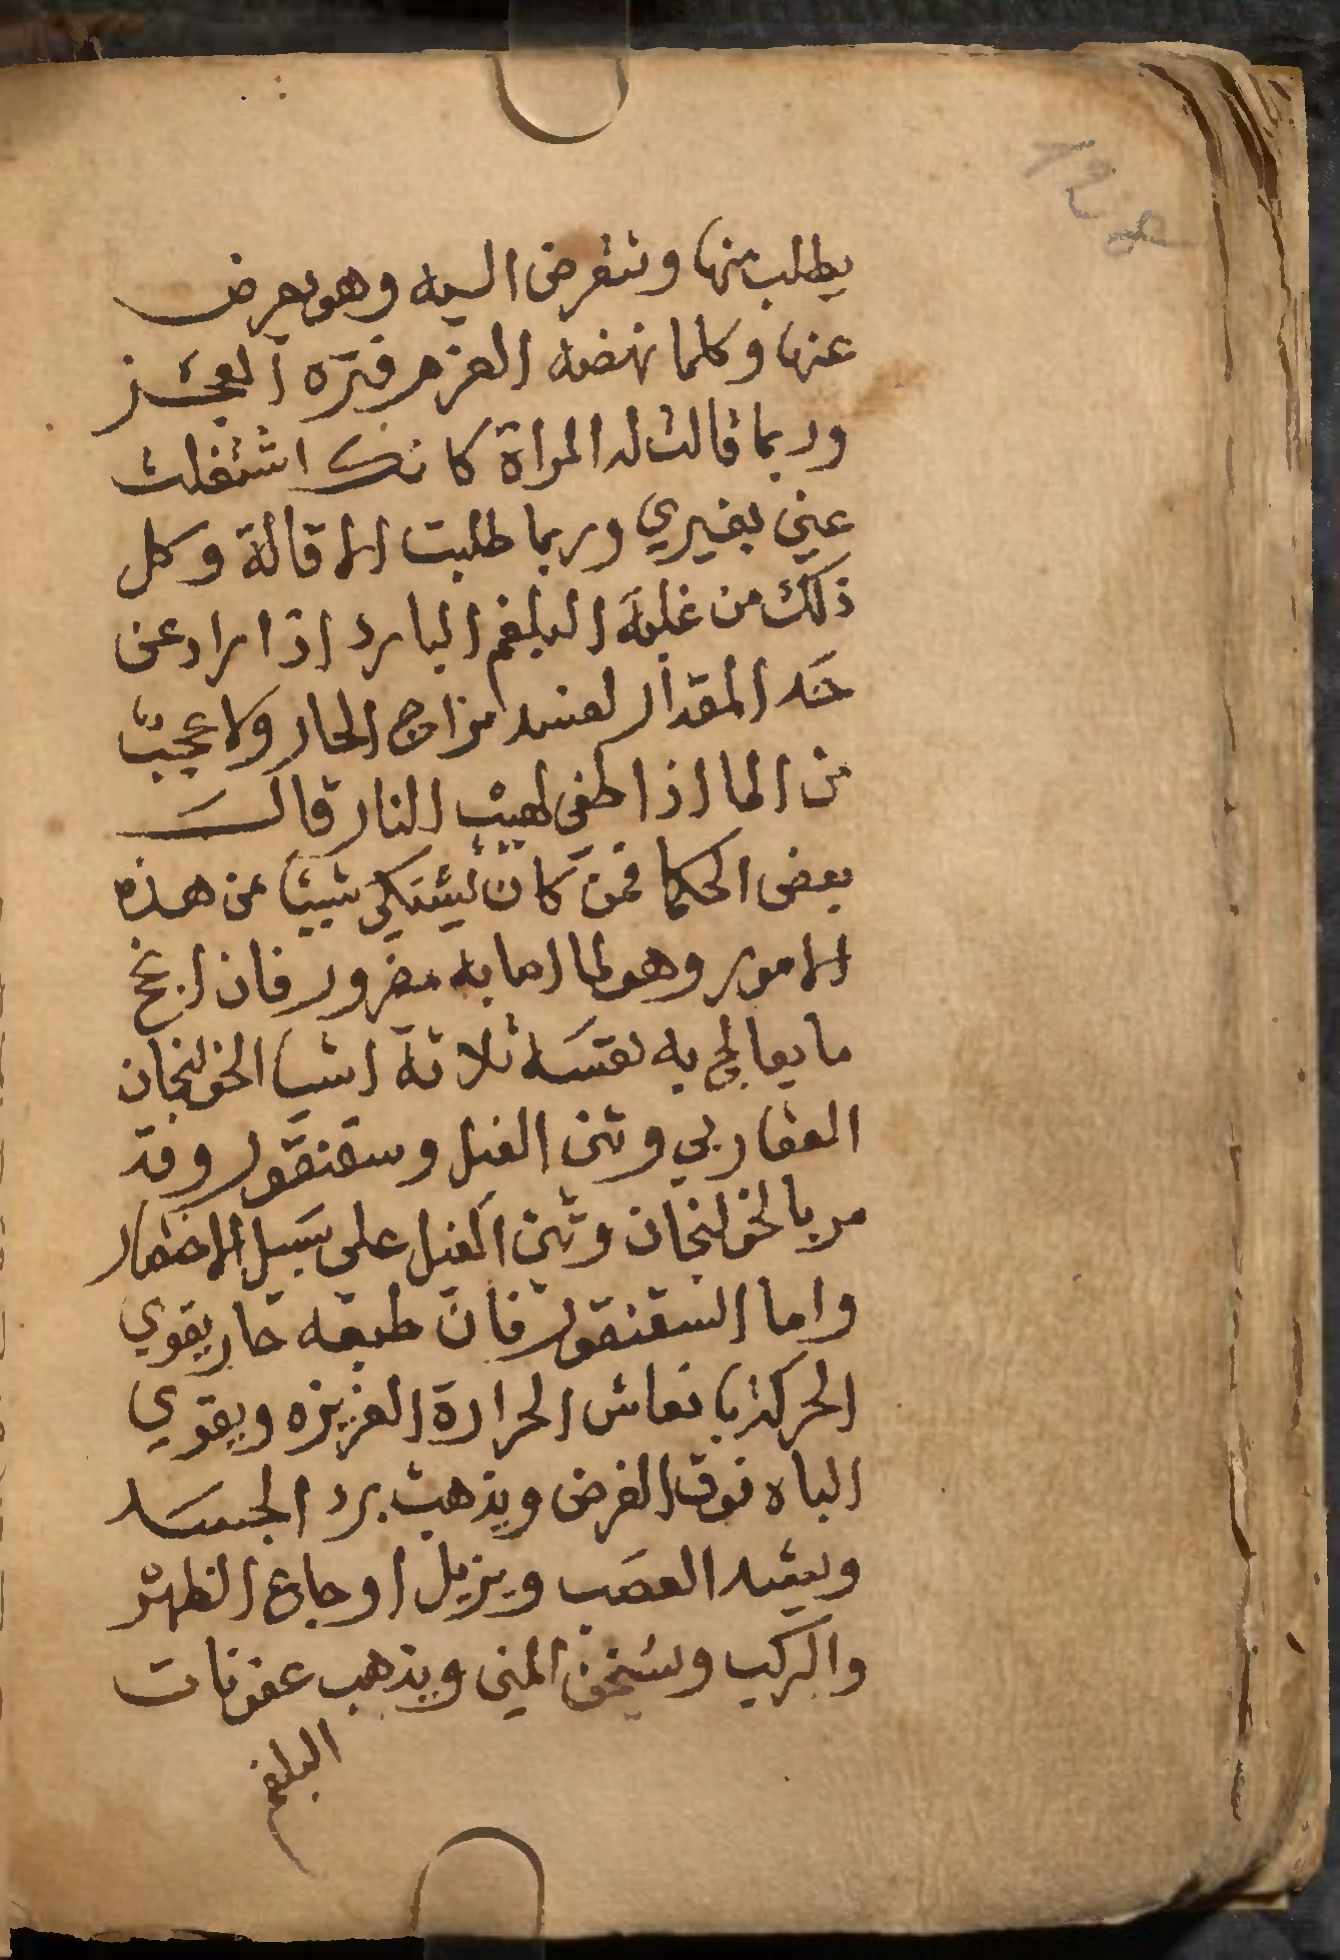 يطلب منها وتتعرض اليه وهو يعرض
عنها وكلما نهضه العزم فتره العجز
وربما قالت له المراة كانك اشتغلت
عني بغيري وربما طلبت الاقالة وكل
ذلك من غلبة البلغم البارد اذا زاد عن
حد المقدار لعند مزاج الحار ولا عجب
من الما اذا طفي لهيب النار قال
بعض الحكما فمن كان يشتكي شيئا من هذه
الامور وهو لما اصابه مضرور فان انجح
ما يعالج به نفسه ثلاثة اشيا الخولنجان
العقاربي وثمن الفيل وسقنقور وقد
مر بالخولنجان وثمن الفيل على سبيل الاختصار
واما السقنقور فان طبعه حار يقوي
الحركة بانعاش الحرارة الغزيزه ويقوي
الباه فوق الغرض ويذهب برد الجسد
ويشد العصب ويزيل اوجاع الظهر
والركب ويسخن المني ويذهب عفونات
البلغم